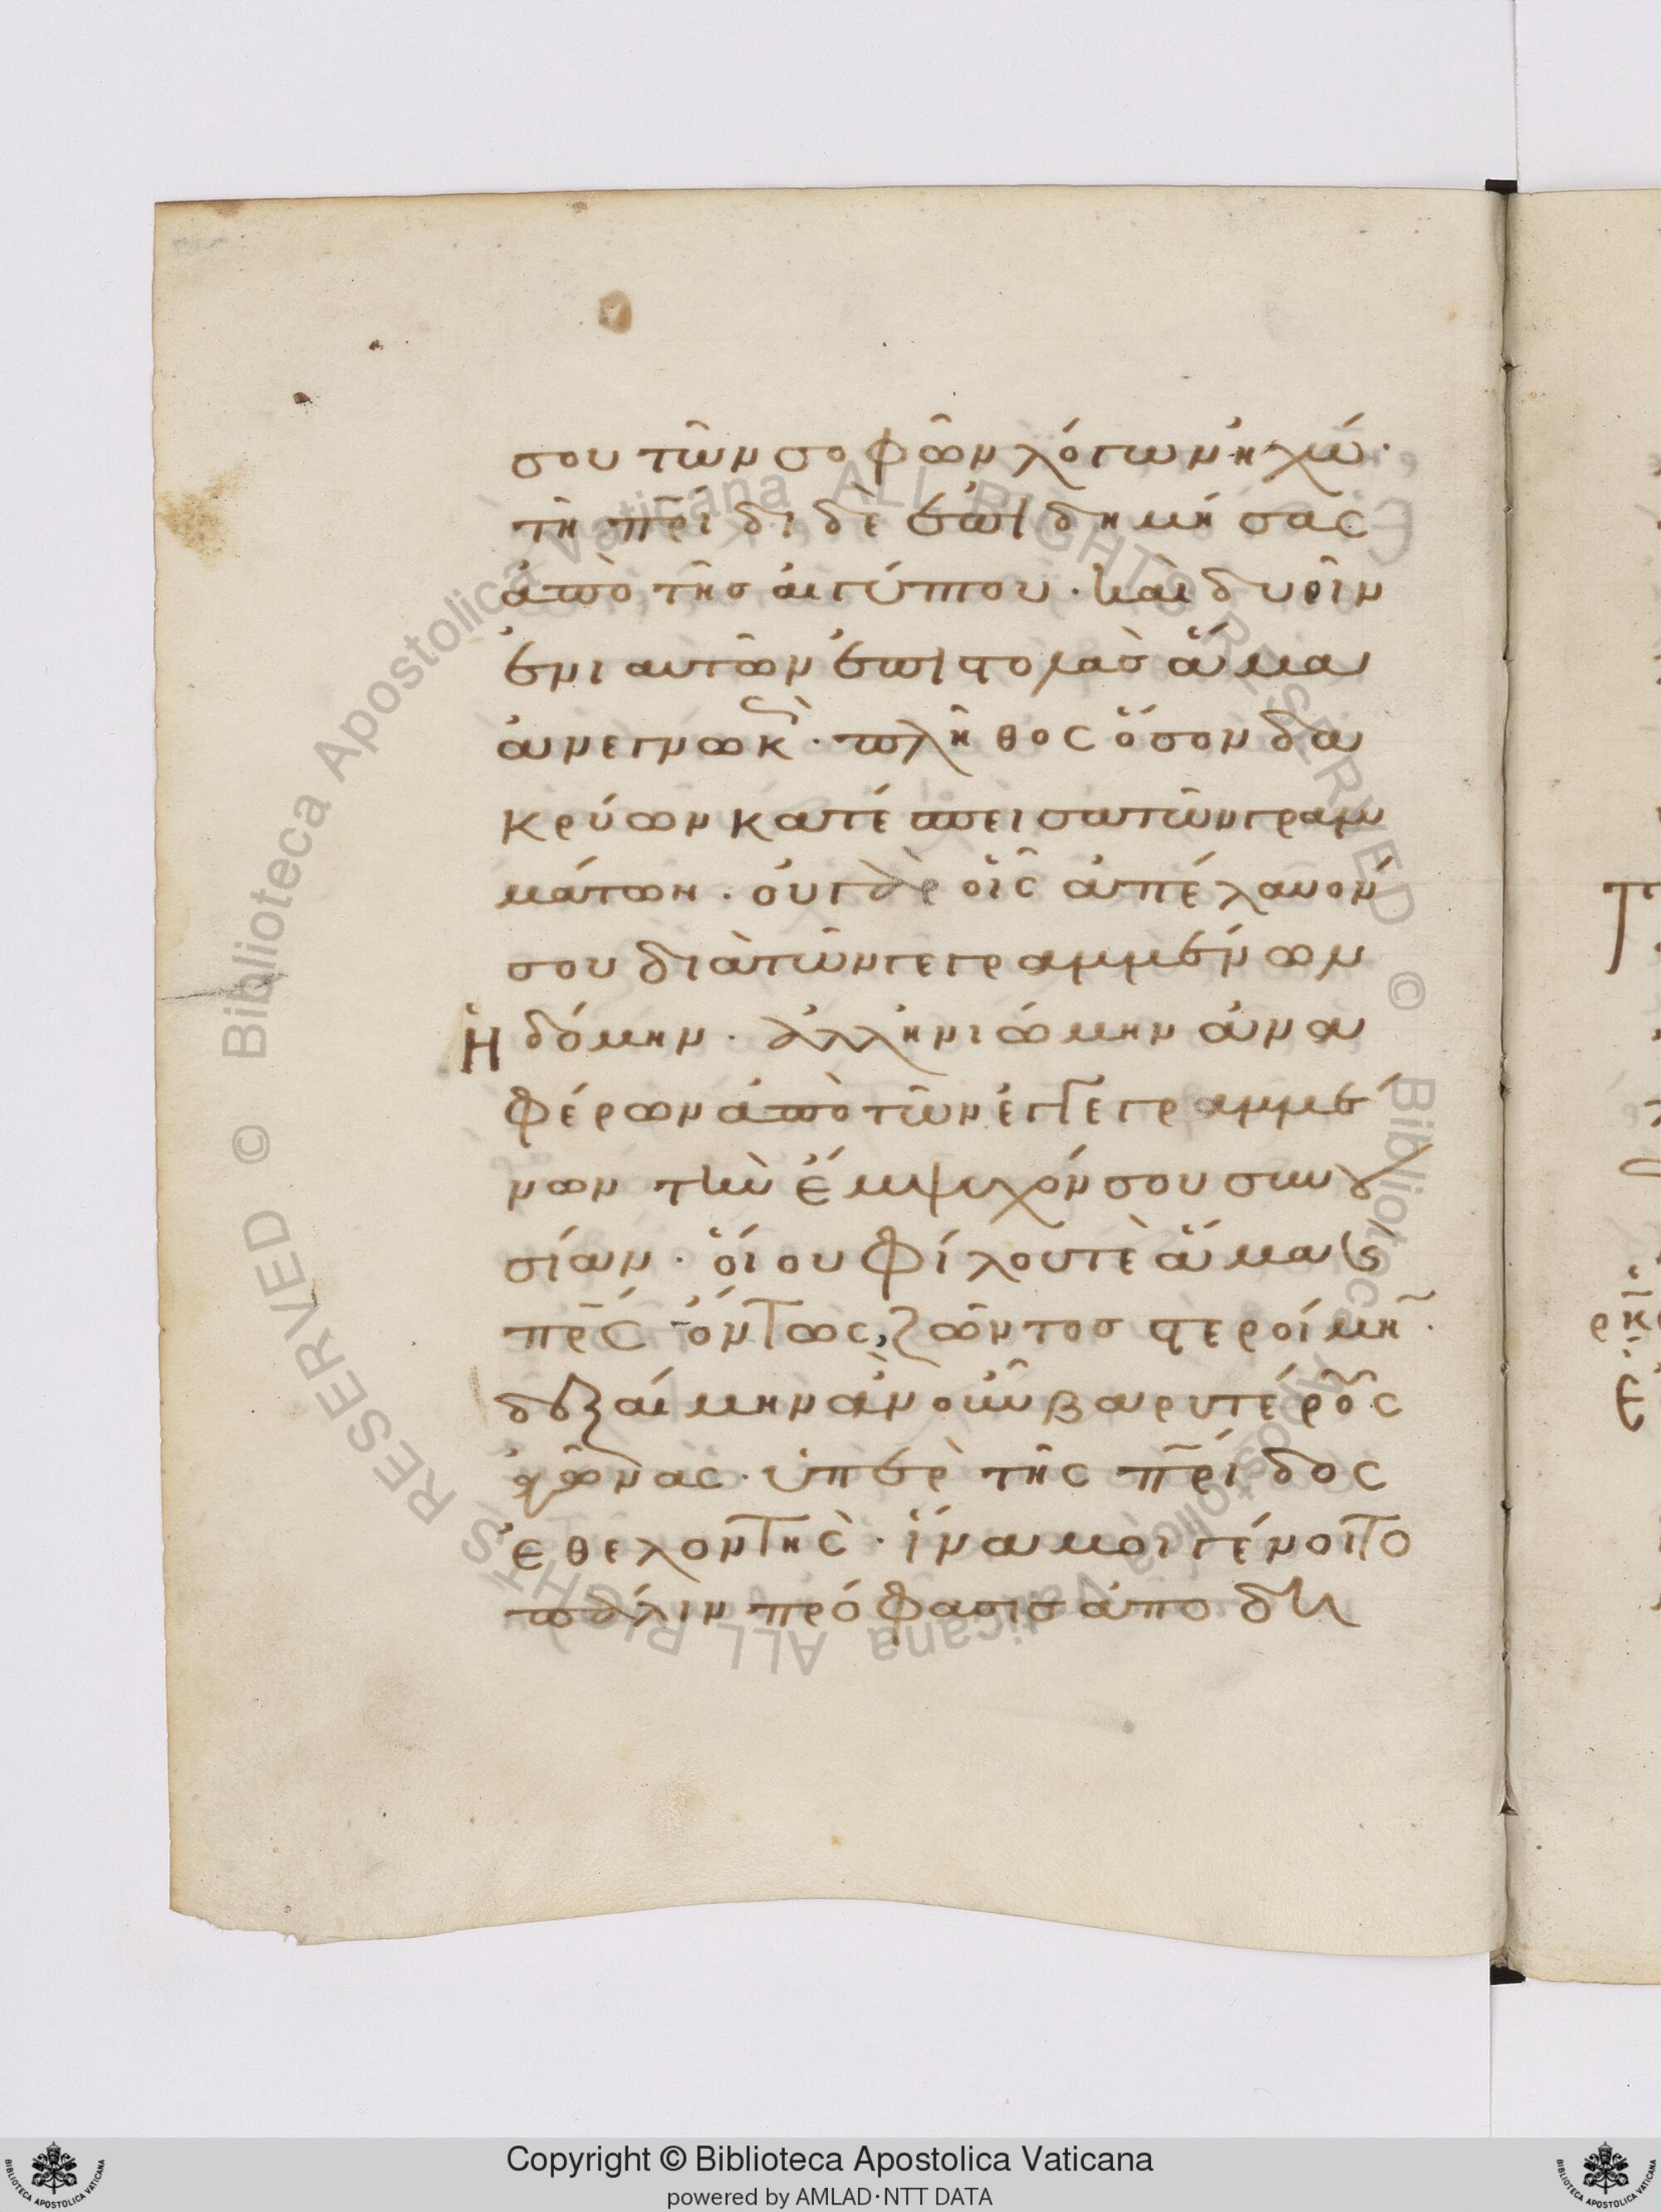 σου τῶν σοφῶν λόγων ἠχώ·
τῆ πρ̅ίδι δὲ ἐπιδημήσας
ἀπὸ τῆσ αἰγύπτου· καὶ δυοῖν
ἐνιαυτῶν ἐπιστολὰσ ἅμα
ἀνεγνωκὼς· πλῆθος ὅσον δα
κρύων κατέσπεισα τῶν γραμ
μάτων· οὐ γὰρ οἷς ἀπέλαυόν
σου διὰ τῶν γεγραμμένων
Ἡδόμην· ἀλλ' ἠνιώμην ἀνα
φέρων ἀπὸ τῶν ἐγγεγραμμέ
νων τὴν ἔμψυχόν σου συνου
σίαν· οἵου φίλου τὲ ἅμα καὶ
πρ̅ς ὄντως, ζῶντοσ στεροίμην·
δεξαίμην ἂν οὖν βαρυτέρους
ἀγῶνας· ὑπὲρ τῆς πρ̅ίδος
ἐθελοντὴς· ἵνα μοι γένοιτο
πάλιν πρόφασισ ἀποδη
© Biblioteca Apostolica Vaticana ALL RIGHTS RESERVED © Biblioteca Apostolica Vaticana ALL RIGHTS RESERVED
Copyright © Biblioteca Apostolica Vaticana
powered by AMLAD·NTT DATA